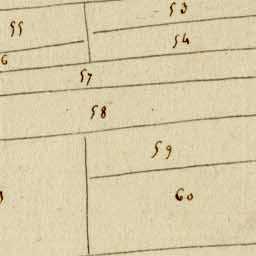 53
55
54
6
57
58
59
60